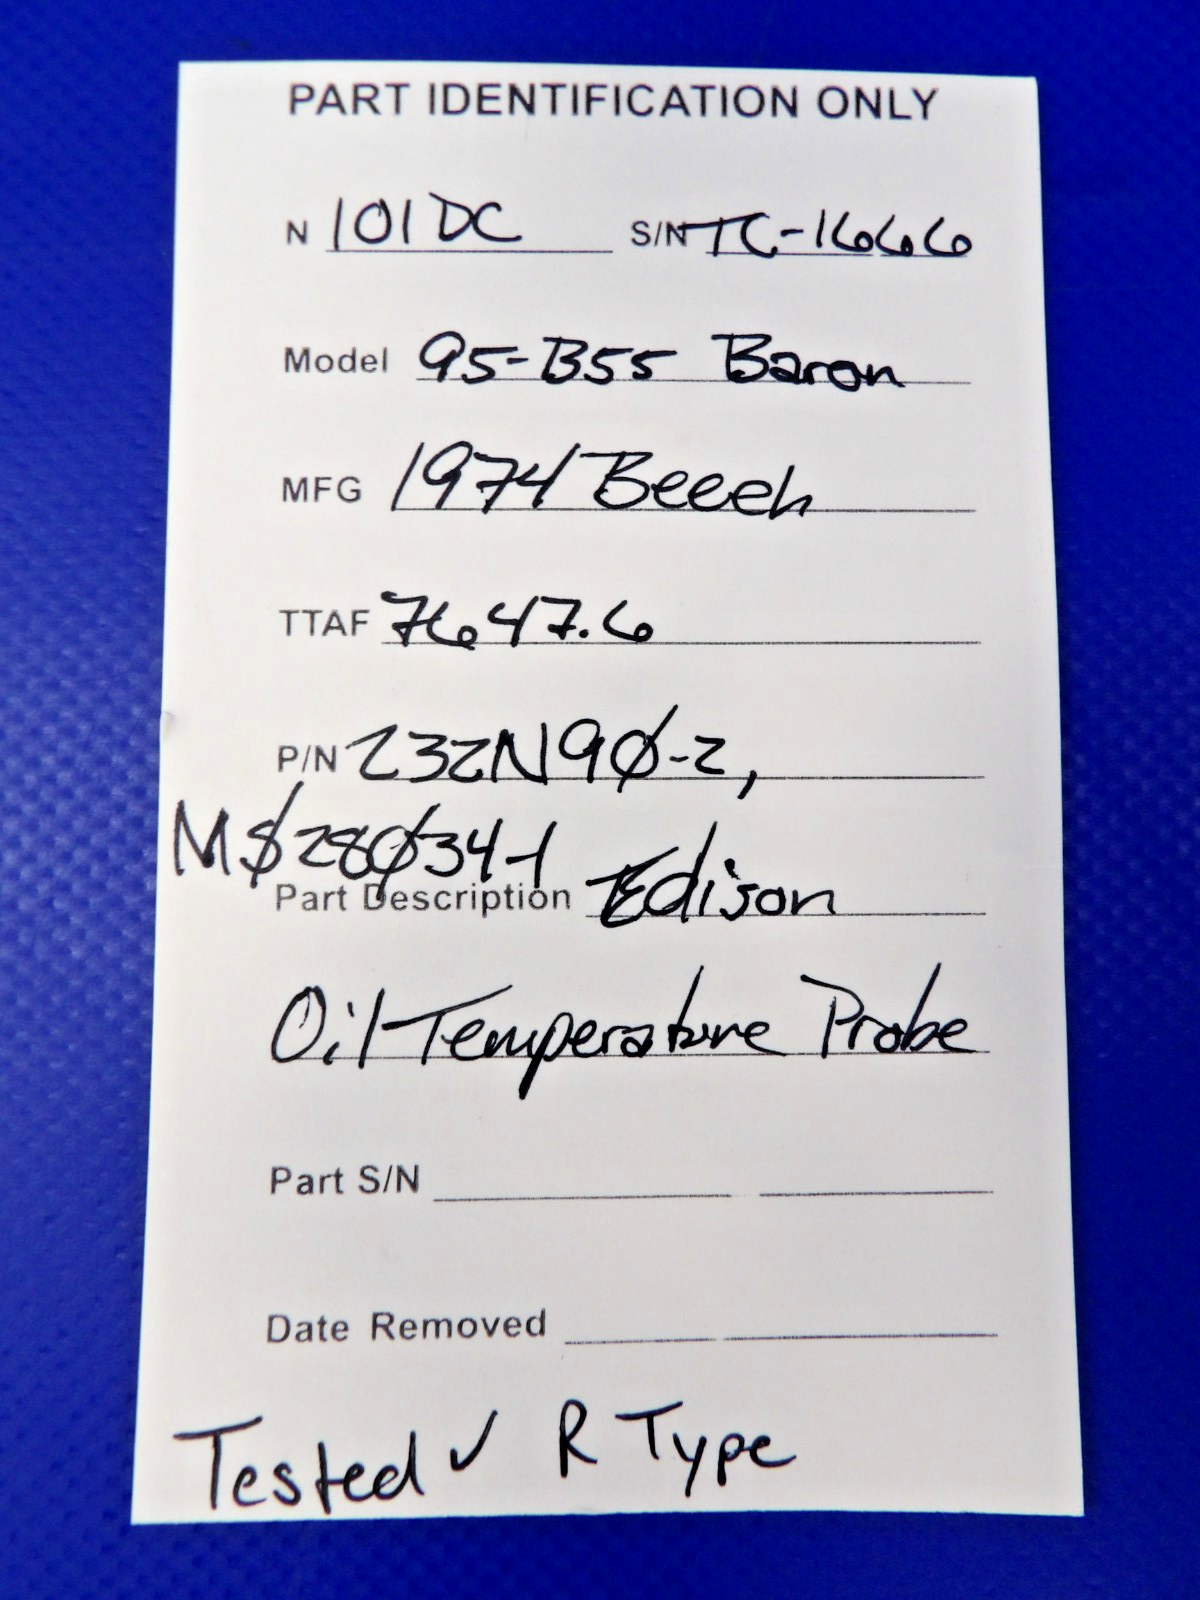 PART IDENTIFICATION ONLY
N 101DC S/N TC-1666
Model 95-B55 Baron
MFG 1974 Beech
TTAF 7647.6
P/N 232N9Ø-2,
MS28Ø34-1
Part Description Edison
Oil Temperature Probe
Part S/N
Date Removed
Tested ✓ R Type